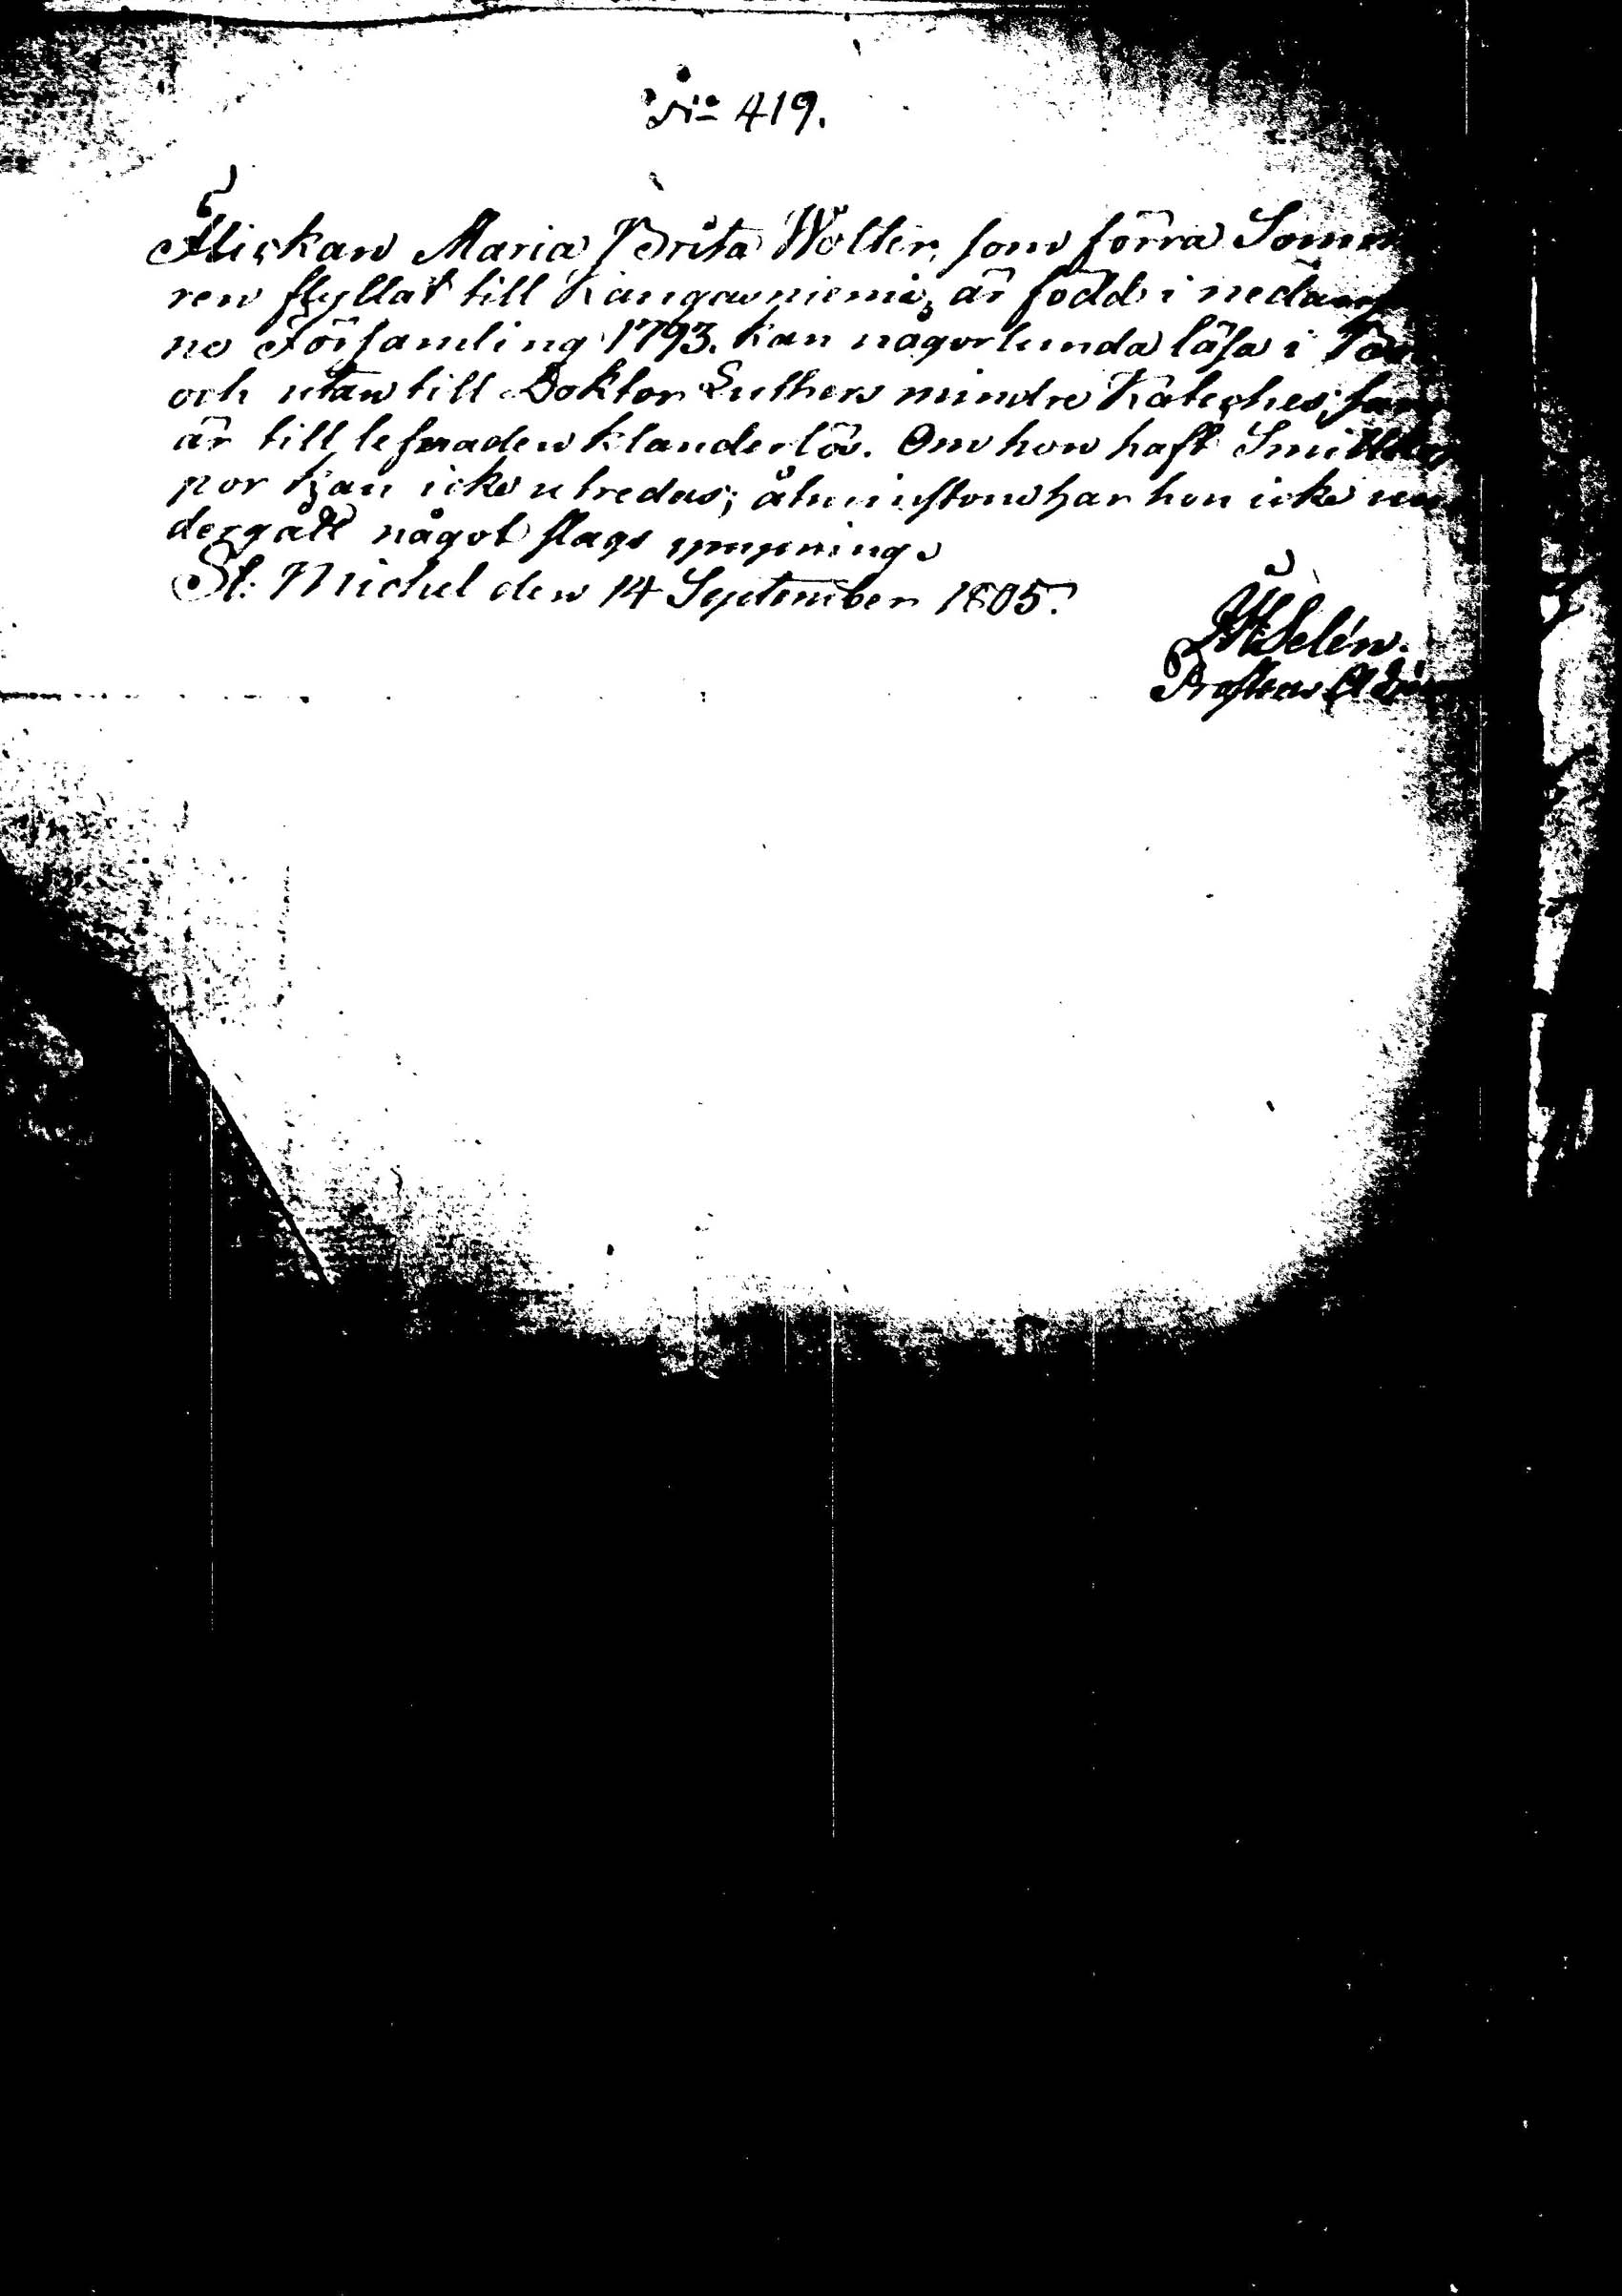 No 419.
Flickan Maria Brita Wolter, som förra Somma
ren flyttat till Kangasniemi, är född i nedanst
ne Församling 1793. kan någorlunda läsa i
och utan till Doktor Luthers mindre Kateches; samt
är till lefnaden klanderlös. Om hon haft Smittkop
por kan icke utredas; åtminstone har hon icke un
dergått något slags ympning.
St. Michel den 14 September 1805.
Selén.